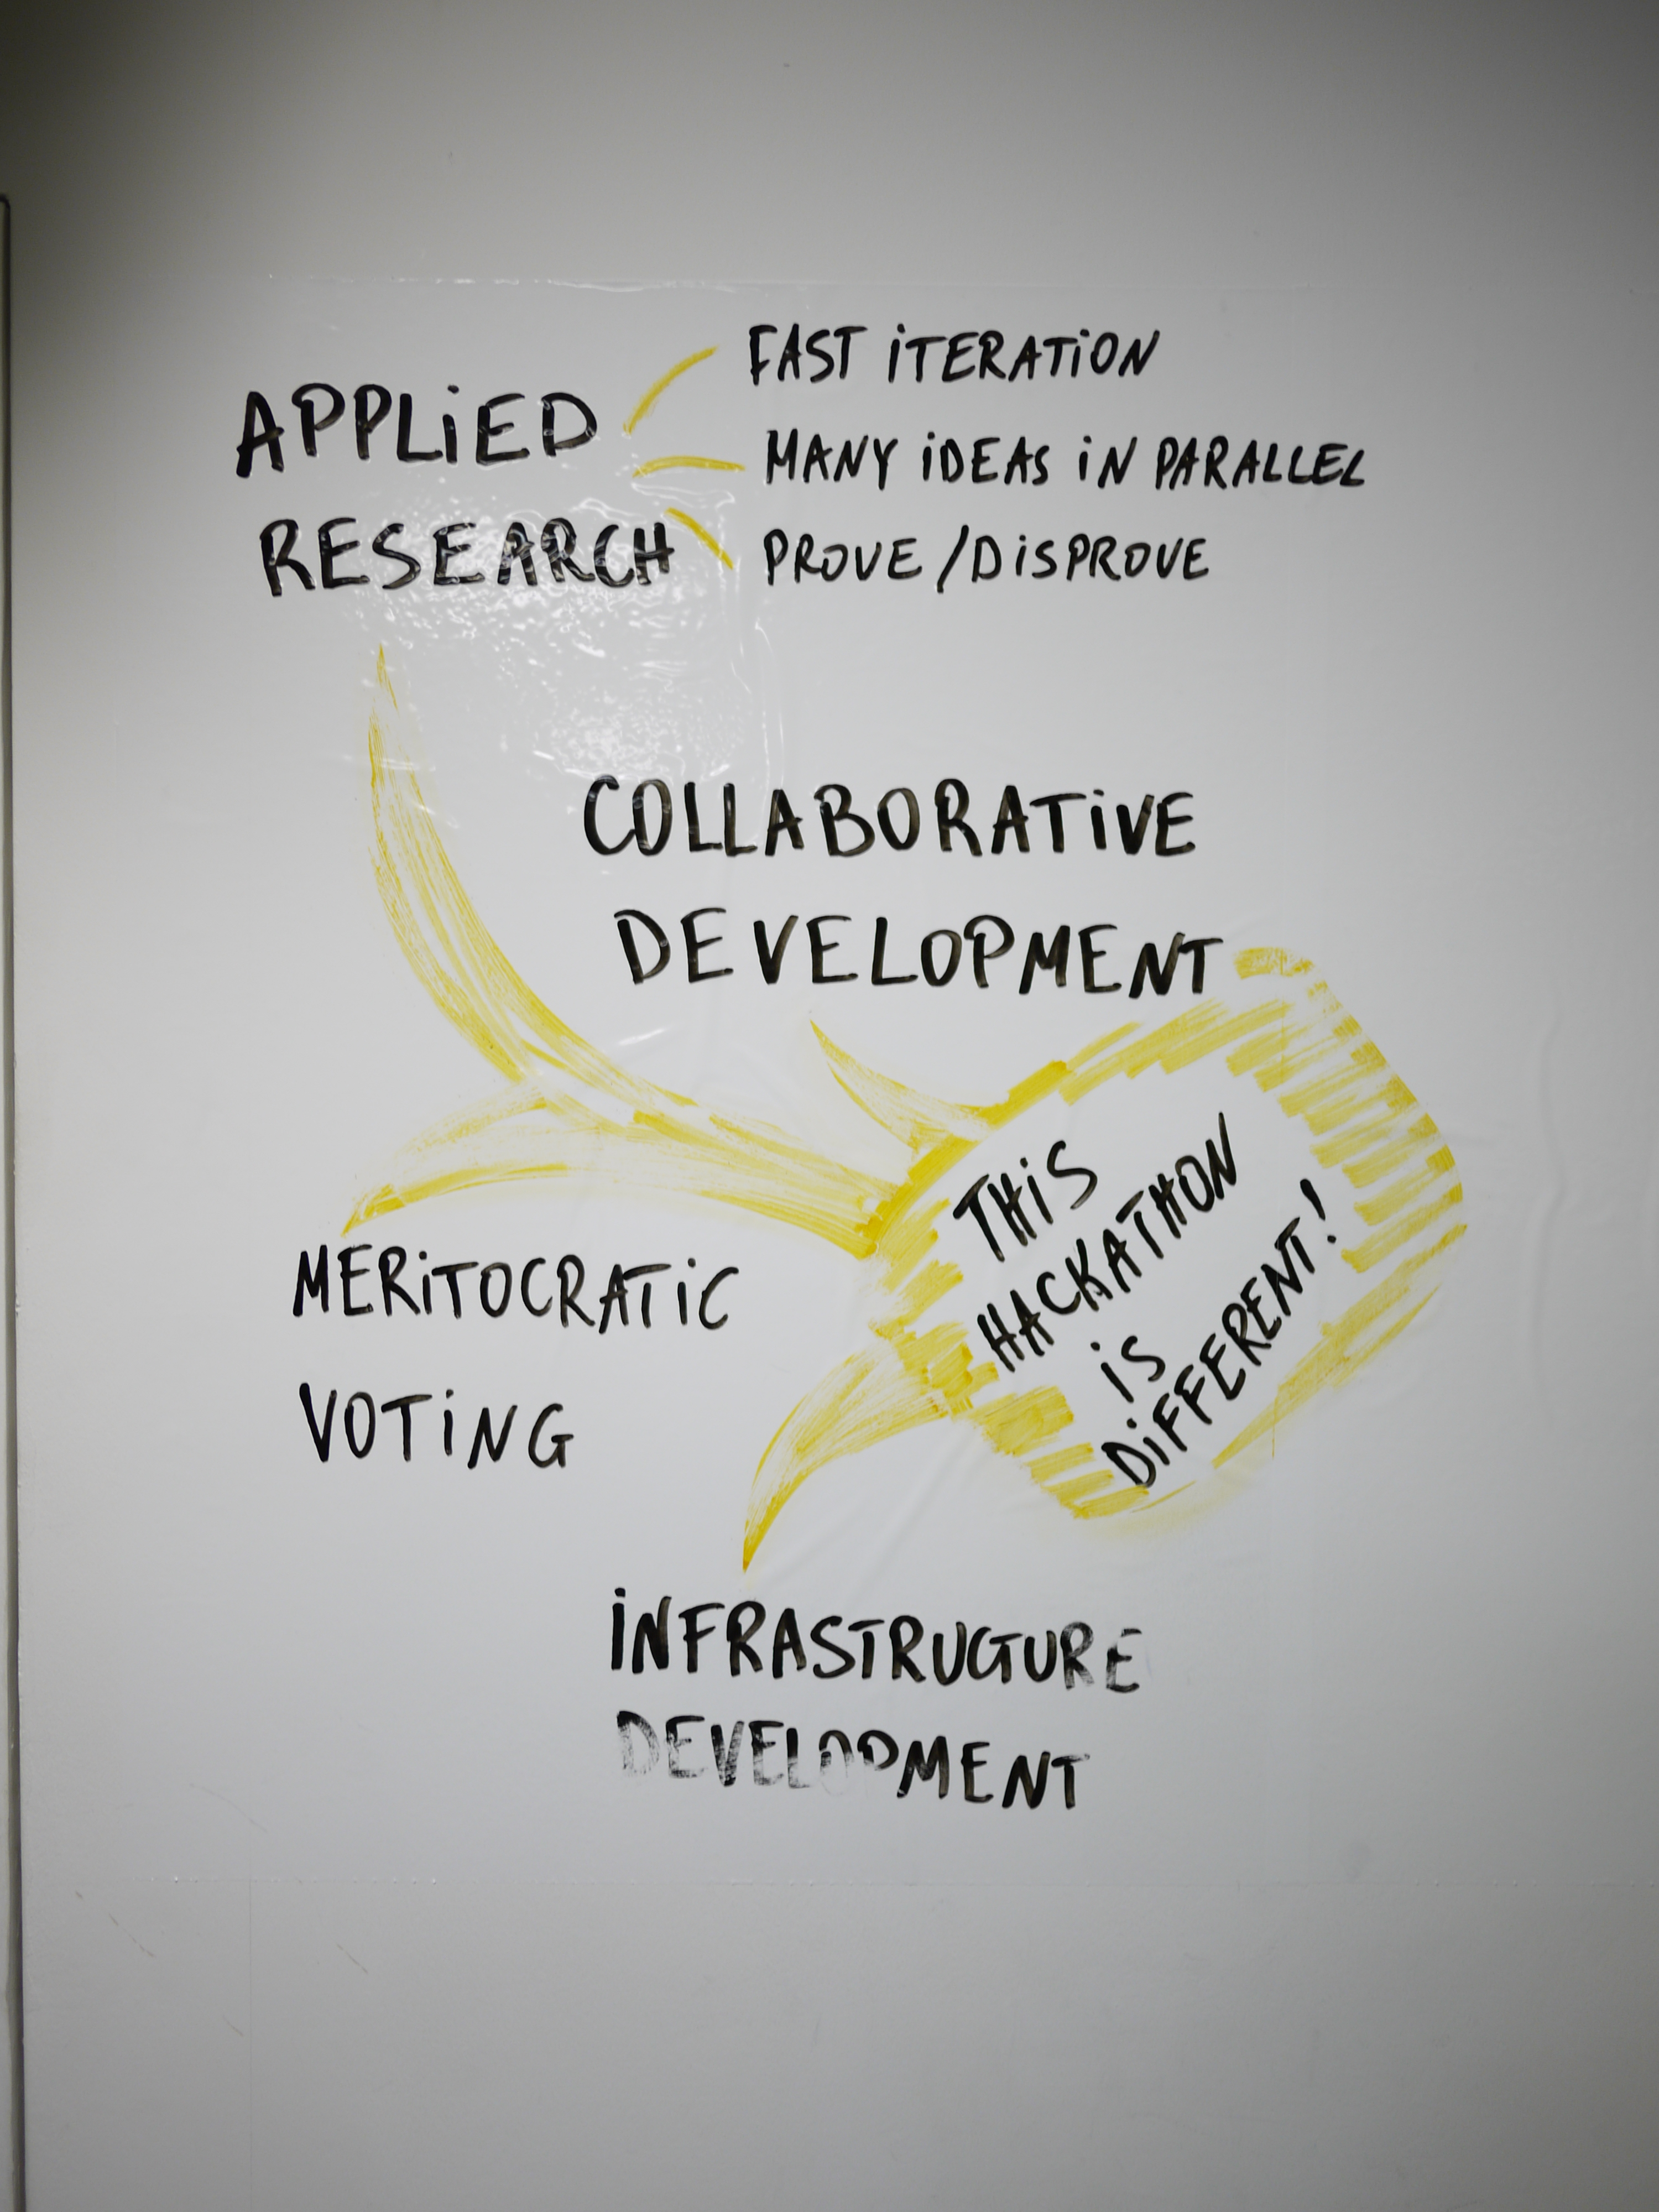 APPLIED
RESEARCH
FAST ITERATION
MANY IDEAS IN PARALLEL
PROVE/DISPROVE
COLLABORATIVE
DEVELOPMENT
THIS
HACKATHON
IS
DIFFERENT!
MERITOCRATIC
VOTING
INFRASTRUCTURE
DEVELOPMENT